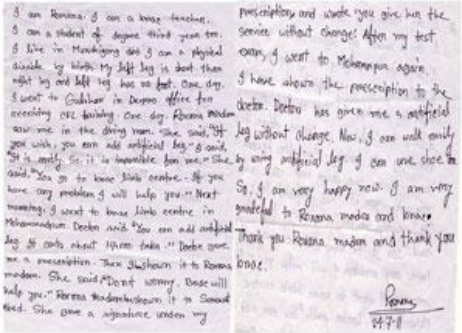 I am Romana. I am a brac teacher.
I am a student of degree third year too.
I live in Munshigonj dist. I am a physical
disable by birth. My left leg is short then
right leg and left leg has no foot. One day,
I went to Gulshan in Depoo office for
receiving ORL training. One day, Roxana madam
saw me in the dining room. She said, "If
you wish, you can add artificial leg" I said,
"It is costly. So, it is impossible for me." She
said, "You go to brac limb centre. If you
have any problem I will help you." Next
morning, I went to brac limb centre in
Mohammadpur. Doctor said "You can add artificial
leg. It costs about taka." Doctor gave
me a prescription. Then I shown it to Roxana
madam. She said, "Don't worry. Brac will
help you." Roxana madam shown it to
She gave a signature under my
prescription and wrote "you give her the
service without change." After my test
exam, I went to Mohammadpur again.
I have shown the prescription to the
doctor. Doctor has given me a artificial
leg without change. Now, I can walk easily
by using artificial leg. I can use shoe
So, I am very happy now. I am very
grateful to Roxana madam and brac.
Thank you Roxana madam and thank you
brac.
04-7-11